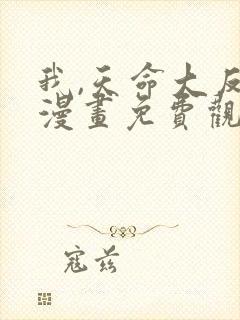 我,天命大反
漫畫免費觀
寇兹